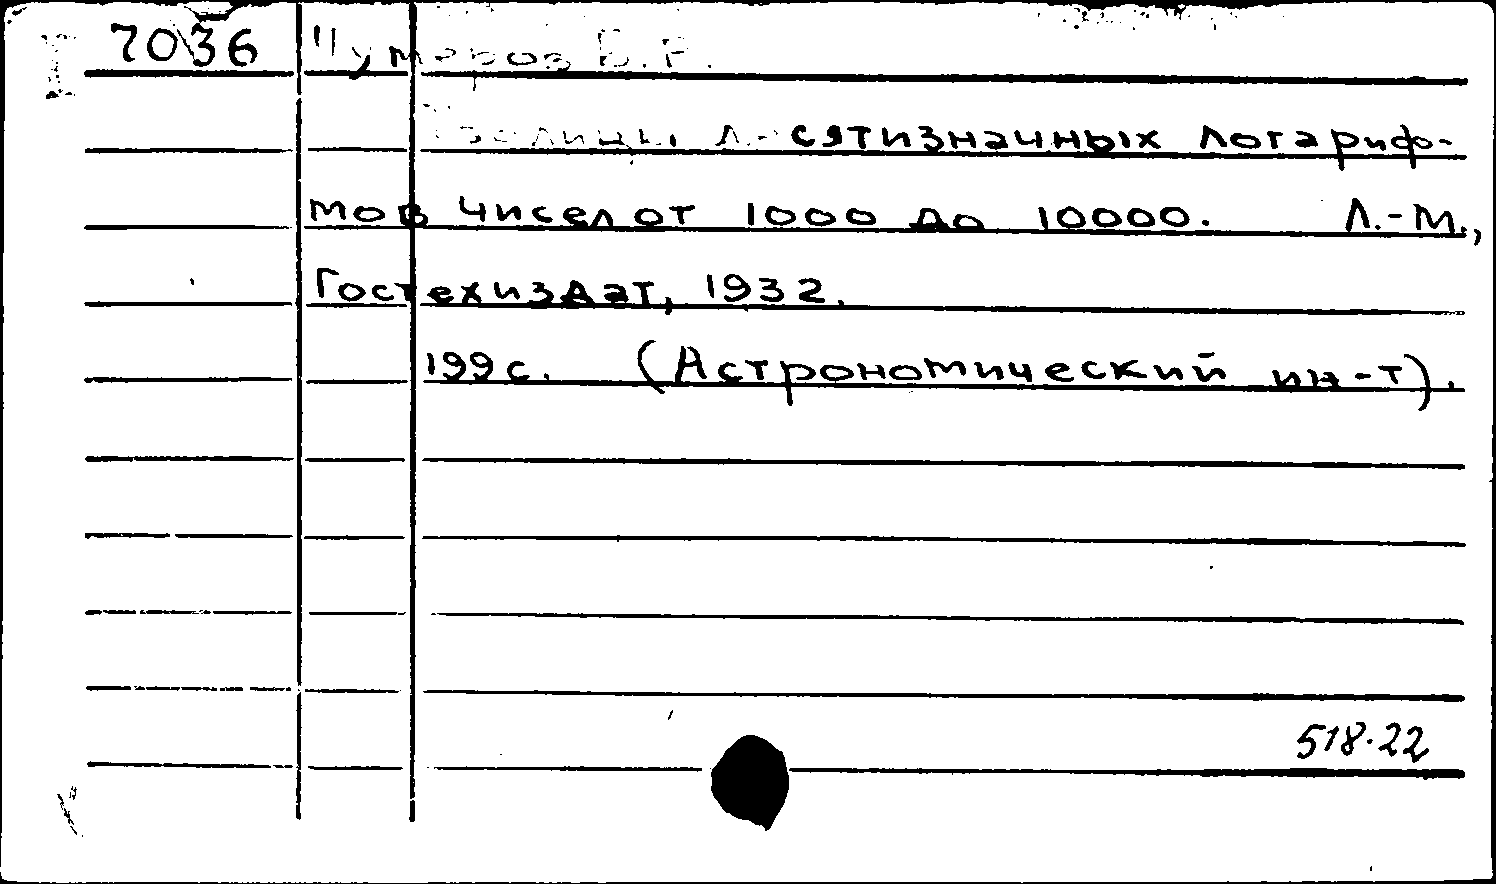 I 7036 Нумеров Б.В.
Таблицы десятизначных логариф-
мов чисел от 1000 до 10000. Л.-М.,
Гостехиздат, 1932.
199 с. (Астрономический ин-т).
518.22